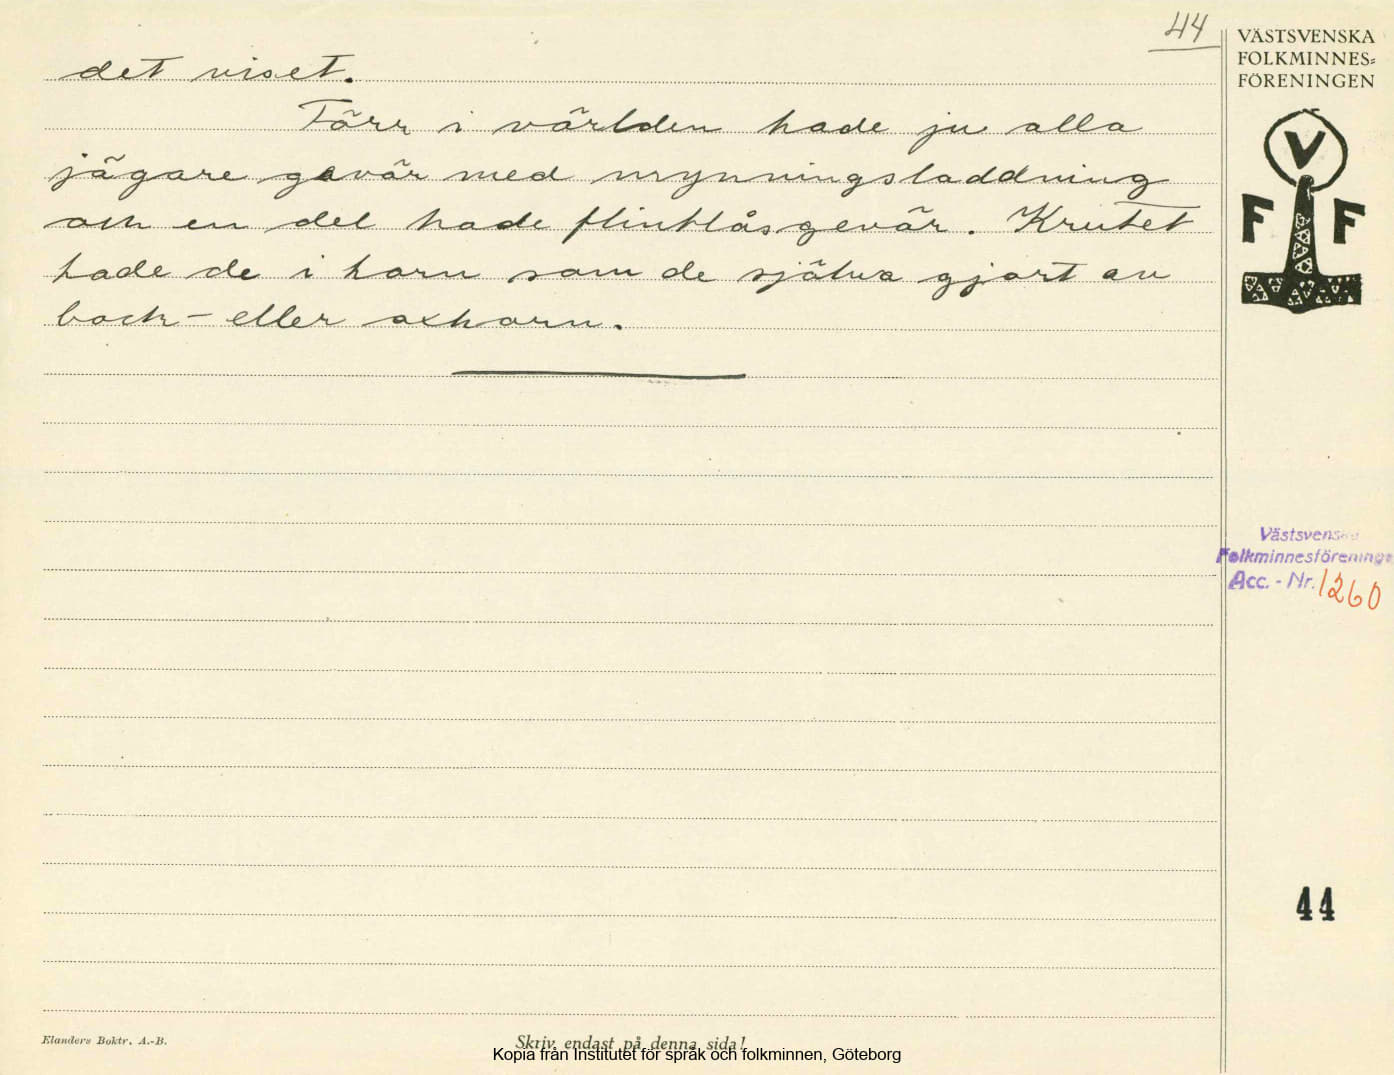 44
det viset.
Förr i världen hade ju alla
jägare gevär med mynningsladdning
och en del hade flintlåsgevär. Krutet
hade de i horn som de själva gjort av
bock- eller oxhorn.
VÄSTSVENSKA
FOLKMINNES-
FÖRENINGEN
V
F F
Västsvenska
Folkminnesförening
Acc. - Nr. 1260
44
Elanders Boktr. A.-B.
Skriv endast på denna sida!
Kopia från Institutet för språk och folkminnen, Göteborg